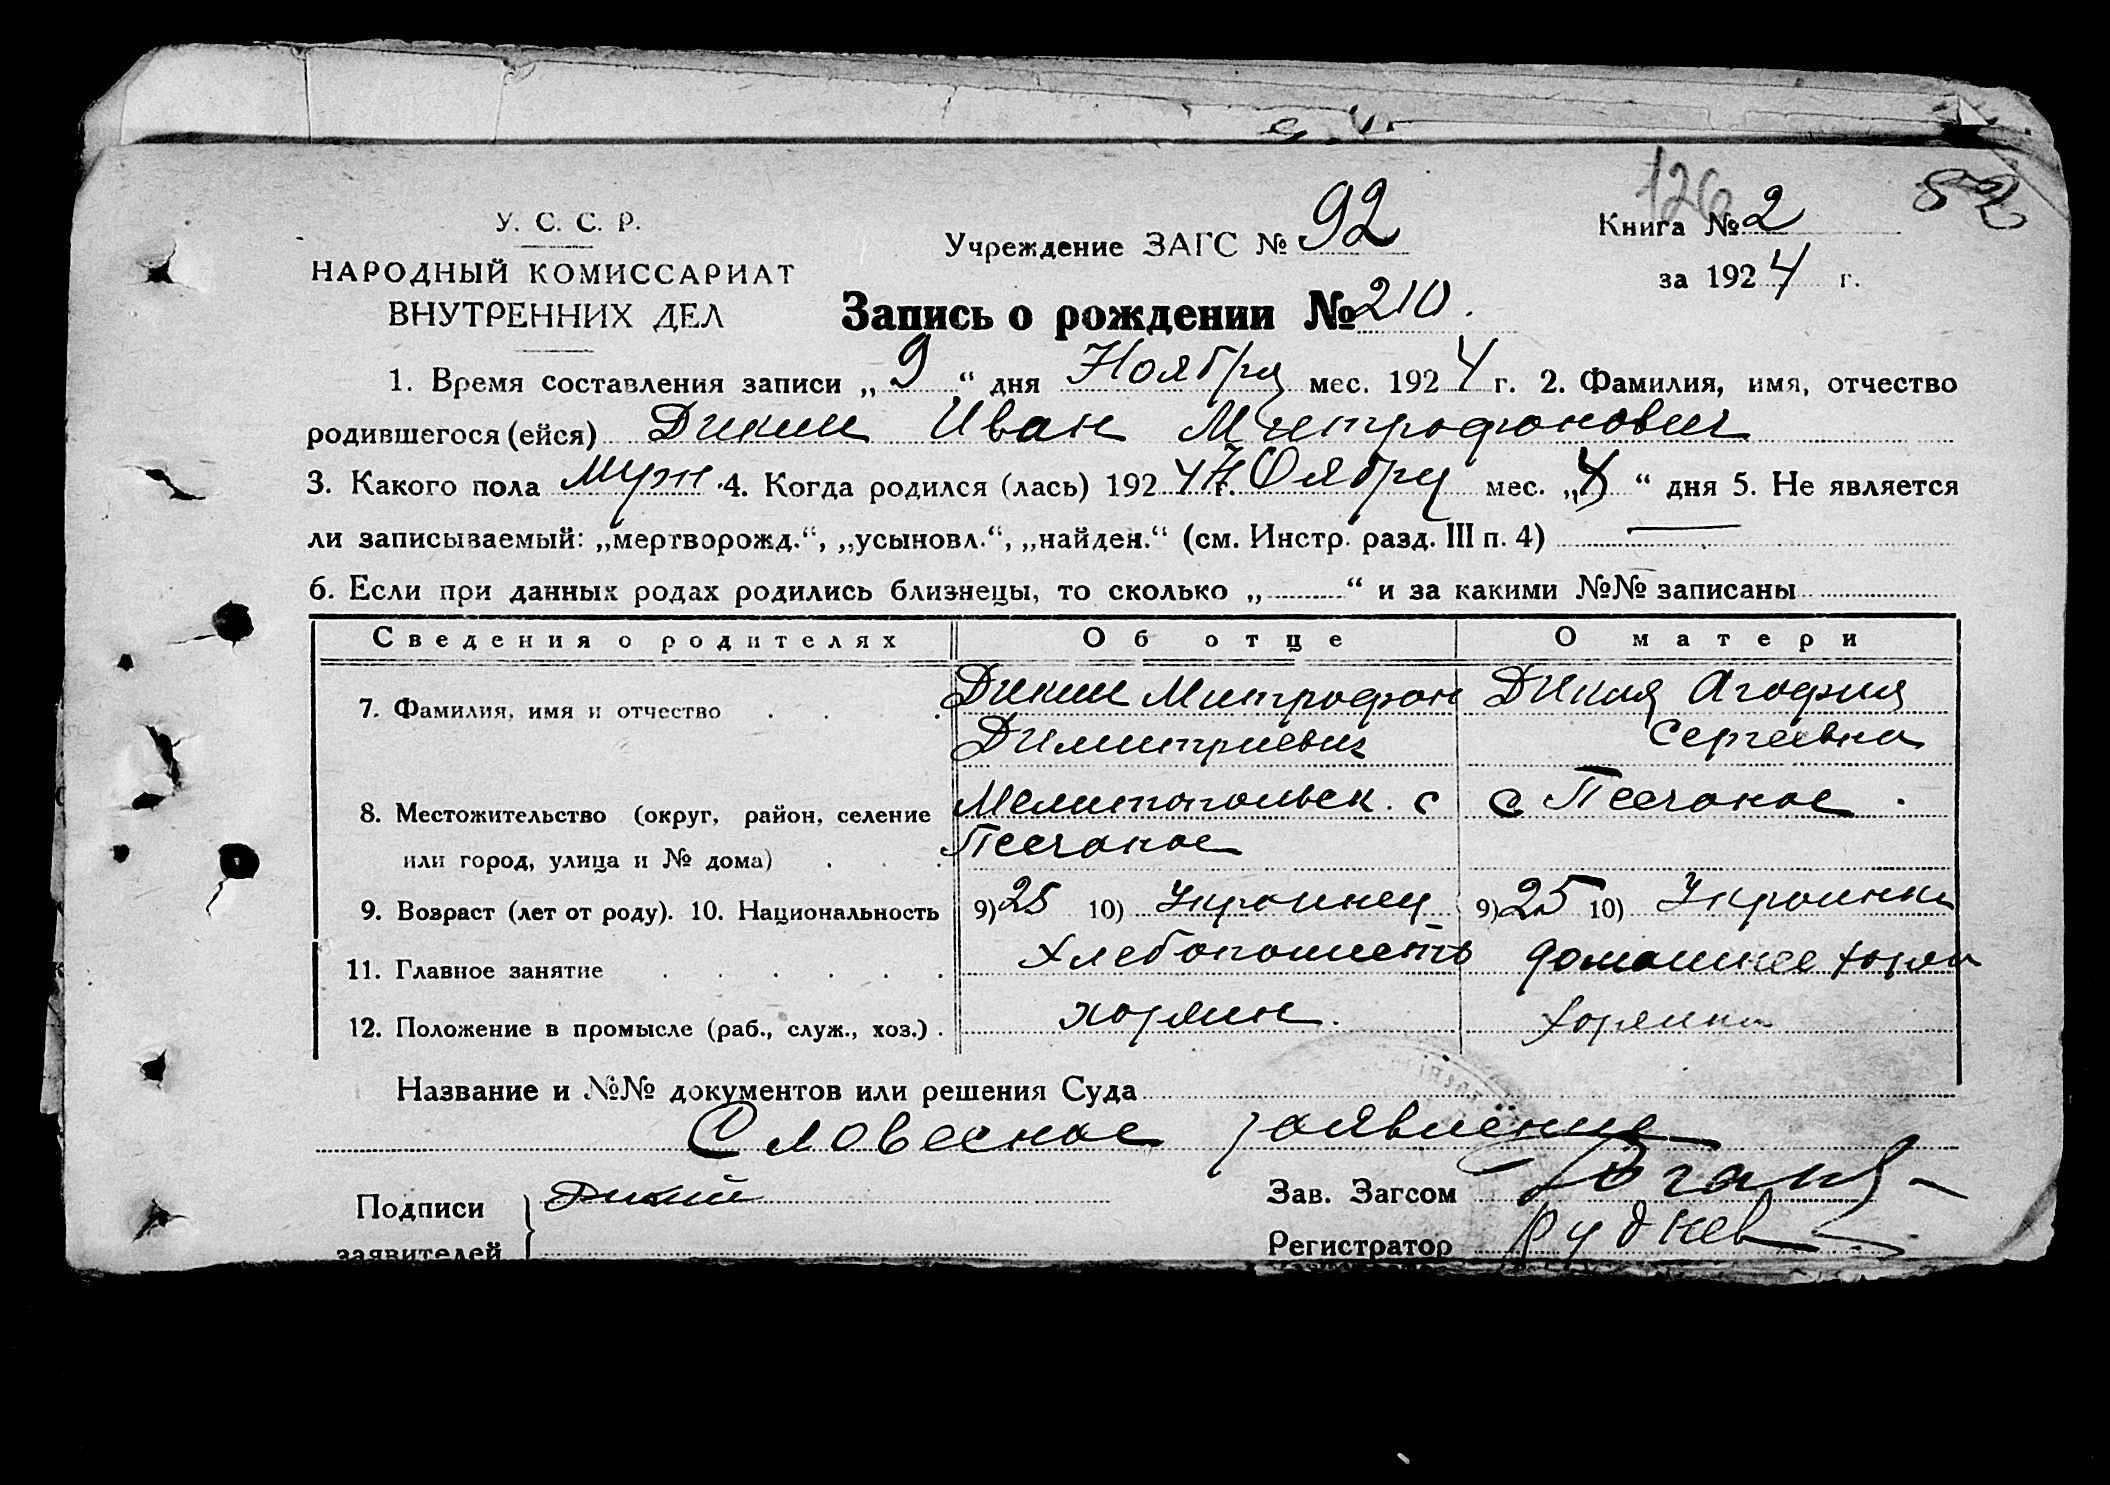 126 82
У. С. С. Р.
НАРОДНЫЙ КОМИССАРИАТ
ВНУТРЕННИХ ДЕЛ
Учреждение ЗАГС № 92
Книга № 2
за 1924 г.
Запись о рождении № 210.
1. Время составления записи „9“ дня Ноября мес. 1924 г. 2. Фамилия, имя, отчество
родившегося (ейся) Дикий Иван Митрофонович
3. Какого пола муж. 4. Когда родился (лась) 1924 г. Ноября мес. „ “ дня 5. Не является
ли записываемый: „мертворожд.“, „усыновл.“, „найден.“ (см. Инстр. разд. III п. 4) —
6. Если при данных родах родились близнецы, то сколько „ “ и за какими №№ записаны
Сведения о родителях Об отце О матери
7. Фамилия, имя и отчество Дикий Митрофон Дикая Агофия
Димитриевич Сергеевна
8. Местожительство (округ, район, селение Мелитопольск. с с Песчаное.
или город, улица и № дома) Песчаное
9. Возраст (лет от роду). 10. Национальность 9) 25 10) Украинец 9) 25 10) Украинка
11. Главное занятие Хлебопашеств домашнее
12. Положение в промысле (раб., служ., хоз.)
Название и №№ документов или решения Суда
Словесное заявление
Подписи Дикий Зав. Загсом
заявителей Регистратор Руднев